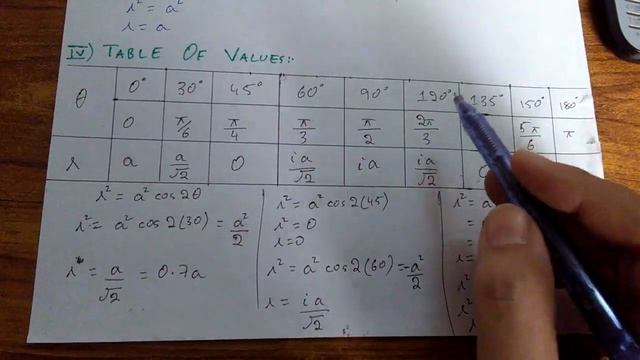 r² = a²
r = a
IV) TABLE OF VALUES:-
θ 0° 30° 45° 60° 90° 120° 135° 150° 180°
0 π/6 π/4 π/3 π/2 2π/3 5π/6 π
r a a/√2 0 ia/√2 ia ia/√2 0
r² = a² cos 2θ
r² = a² cos 2(30) = a²/2
r = a/√2 = 0.7a
r² = a² cos 2(45)
r² = 0
r = 0
r² = a² cos 2(60) = -a²/2
r = ia/√2
r² = a²
=
=
r =
r²
r²